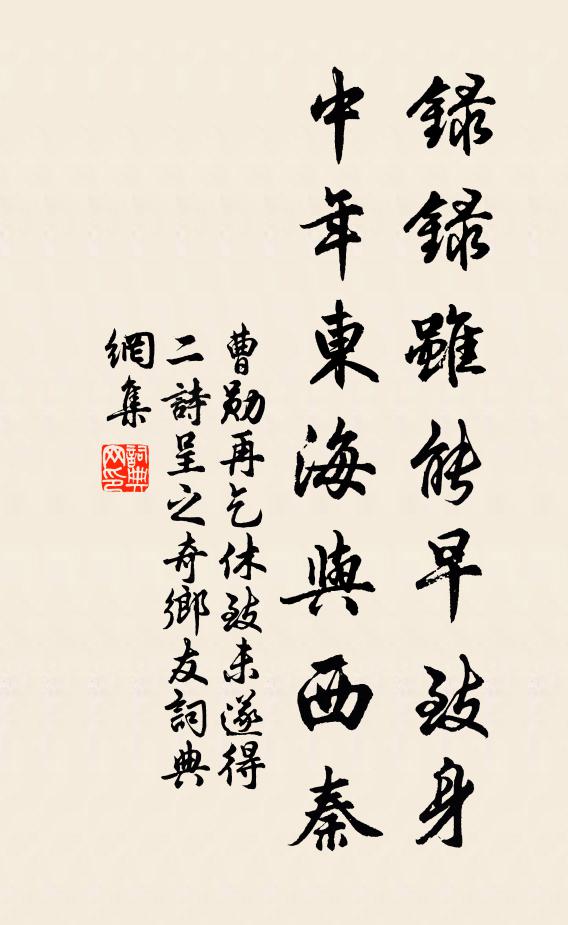 錄錄雖能早致身
中年東海與西秦
曹勛再乞休致未遂得
二詩呈之奇鄉友詞典
網集
詞典網印